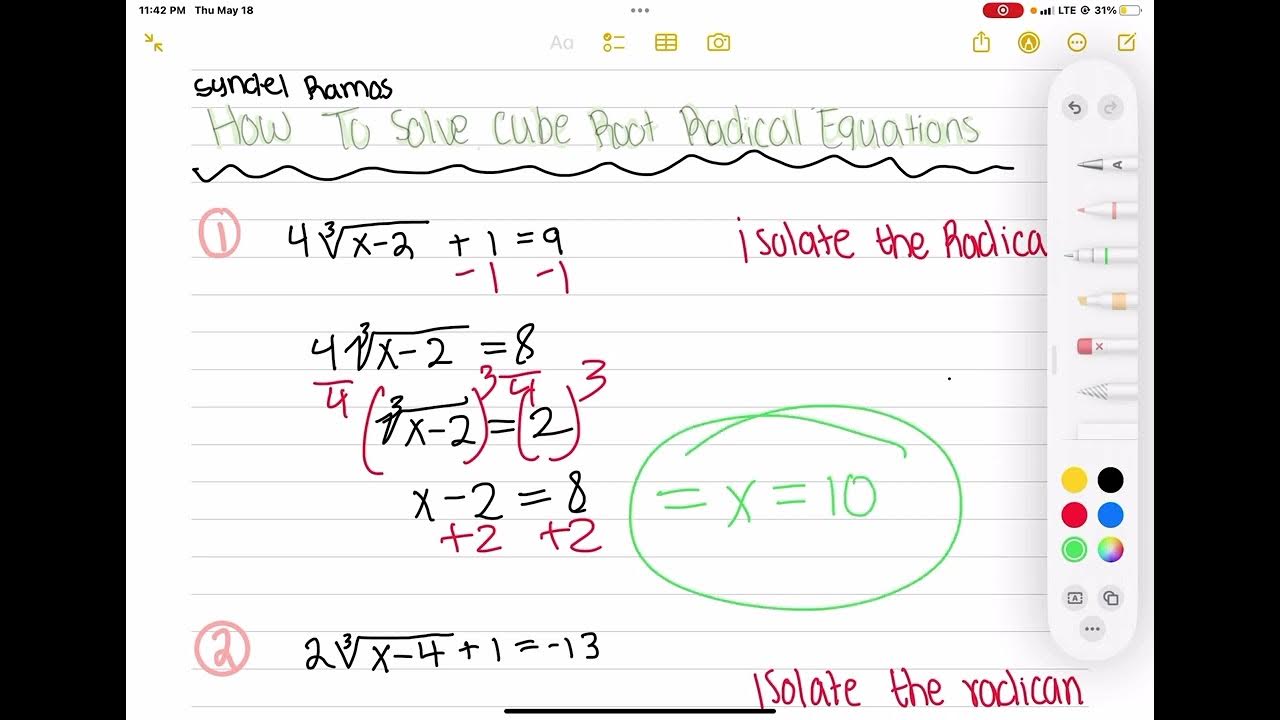 11:42 PM Thu May 18
LTE 31%
Aa
Syndel Ramos
How To Solve Cube Root Radical Equations
1
4∛x-2 + 1 = 9
-1 -1
isolate the Radica
4∛x-2 = 8
4 4
(∛x-2)³ = (2)³
x-2 = 8
+2 +2
= x = 10
2
2∛x-4 + 1 = -13
isolate the radican
A
A